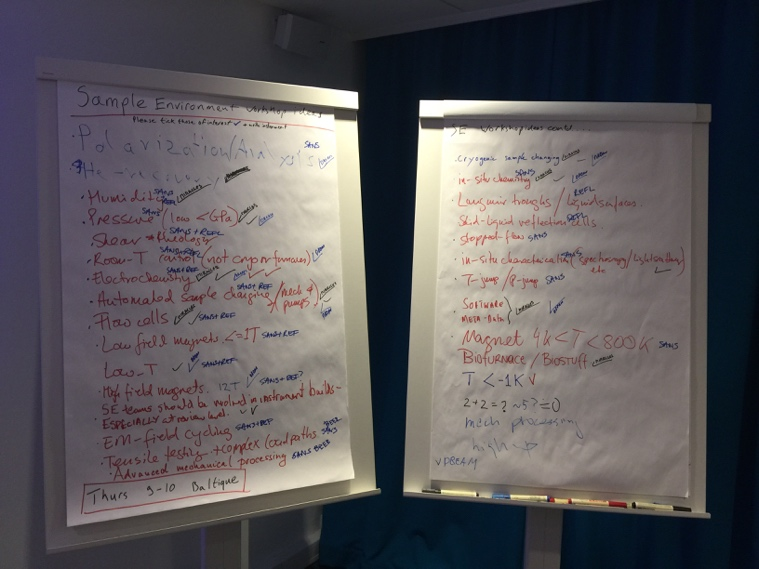 Sample Environment workshop ideas
Please tick those of interest ✓
• Polarization/Analysis SANS
• Humidity SANS REFL
• Pressure SANS (low <GPa)
Shear + Rheology SANS + REFL
• Room-T control (not cryo or furnaces) SANS+REF
• Electrochemistry SANS+REF ✓ ✓ ✓ ✓
• Automated sample changing / (mech + pumps) SANS+REF
• Flow cells ✓ SANS+REF
• Low field magnets <=1T SANS+REF
Low-T ✓ ✓ SANS+REF
• High field magnets. 12T ✓ SANS+REF?
• SE teams should be involved in instrument builds-
ESPECIALLY at review level. ✓ ✓
• EM-field cycling SANS+REF
• Tensile testing + complex load paths. SANS
• Advanced mechanical processing SANS
Thurs 9-10 Baltique
SE workshop ideas cont....
• Cryogenic sample changing
• in-situ chemistry SANS
• Langmuir troughs / liquid surfaces. REFL
Solid-liquid reflection cells REFL
• stopped-flow SANS
• in-situ characterisation SANS (spectroscopy / light scattering etc ✓)
• T-jump / P-jump SANS
• SOFTWARE
META-DATA
• Magnet 4K<T<800K SANS
BIOFURNACE / BIOSTUFF
T <-1K V
2+2=? ~5? =0
mech processing
high up
VDBEAM